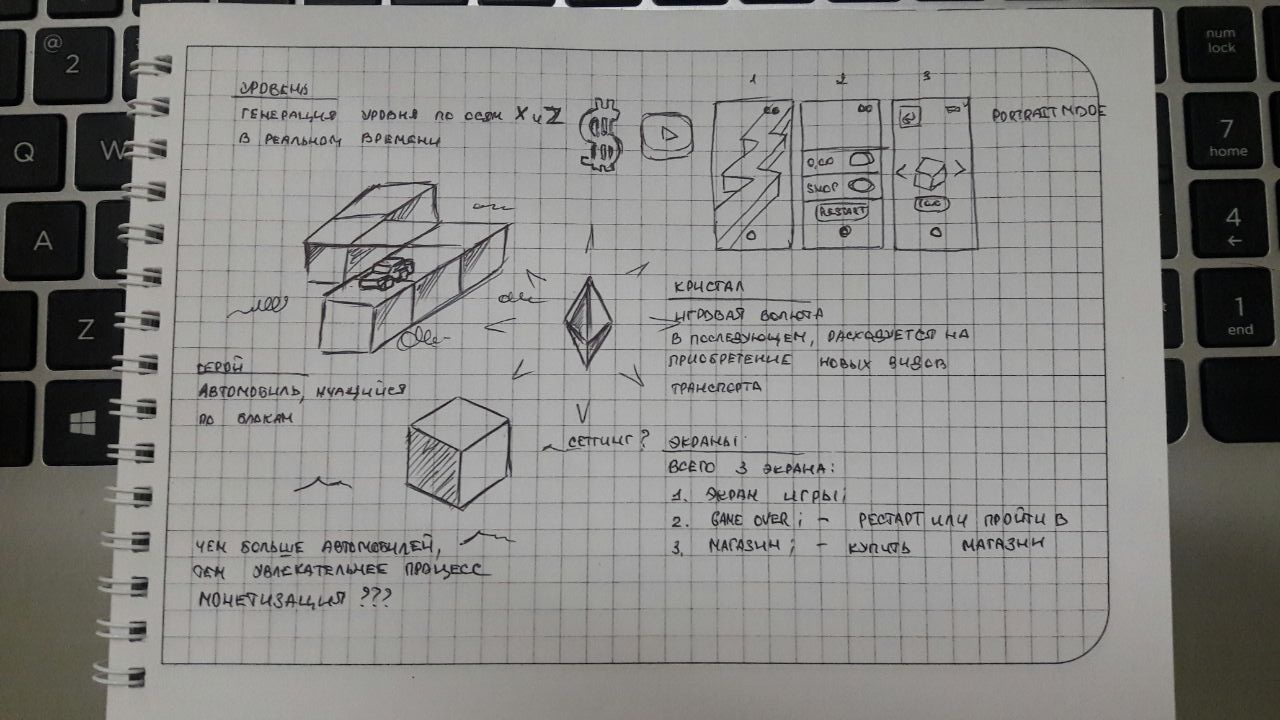 УРОВЕНЬ
ГЕНЕРАЦИЯ УРОВНЯ ПО ОСЯМ X и Z
В РЕАЛЬНОМ ВРЕМЕНИ
$
1 2 3
PORTRAIT MODE
0,00
SHOP
RESTART
КРИСТАЛ
ИГРОВАЯ ВОЛЮТА
В ПОСЛЕДУЮЩЕМ, РАСХОДУЕТСЯ НА
ПРИОБРЕТЕНИЕ НОВЫХ ВИДОВ
ТРАНСПОРТА
ГЕРОЙ
АВТОМОБИЛЬ, МЧАЩИЙСЯ
ПО БЛОКАМ
СЕТТИНГ?
ЭКРАНЫ
ВСЕГО 3 ЭКРАНА:
1. ЭКРАН ИГРЫ;
2. GAME OVER; - РЕСТАРТ ИЛИ ПРОЙТИ В
3. МАГАЗИН; - КУПИТЬ МАГАЗИН
ЧЕМ БОЛЬШЕ АВТОМОБИЛЕЙ,
ТЕМ УВЛЕКАТЕЛЬНЕЕ ПРОЦЕСС
МОНЕТИЗАЦИЯ ???
@
2
Q
W
A
Z
num
lock
7
home
4
1
end